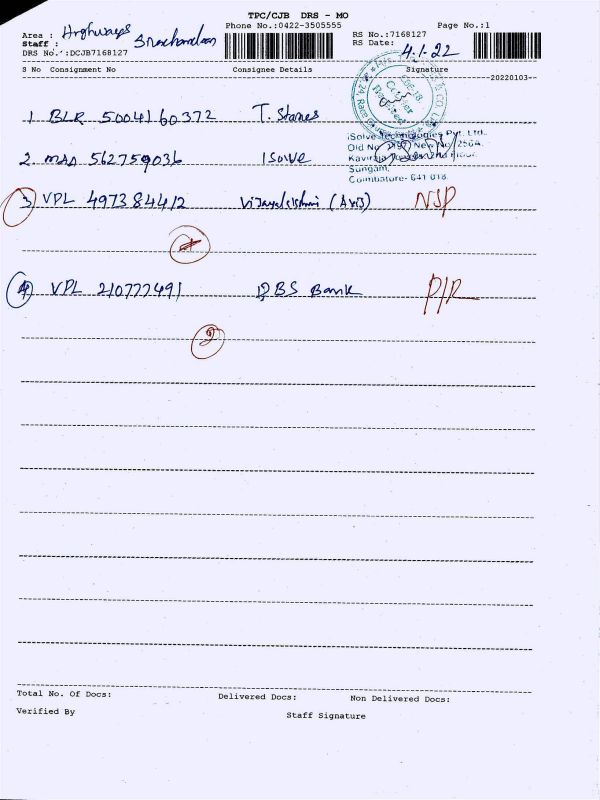 TPC/CJB DRS - MO
Phone No.:0422-3505555 Page No.:1
Area : Highways
Staff :
RS No.:7168127
RS Date: 4.1.22
DRS No.:DCJB7168127
S No Consignment No Consignee Details Signature
20220103
1 BLR 5004160372 T. Stanes
iSolve Technologies Pvt. Ltd.
Old No New No
2. MAD 562759036 Isolve
Sungam,
Coimbatore- 641 018.
3 VPL 497384412 (Axis) NSP
4 VPL 210777491 DBS Bank P/R
2
Total No. Of Docs: Delivered Docs: Non Delivered Docs:
Verified By Staff Signature